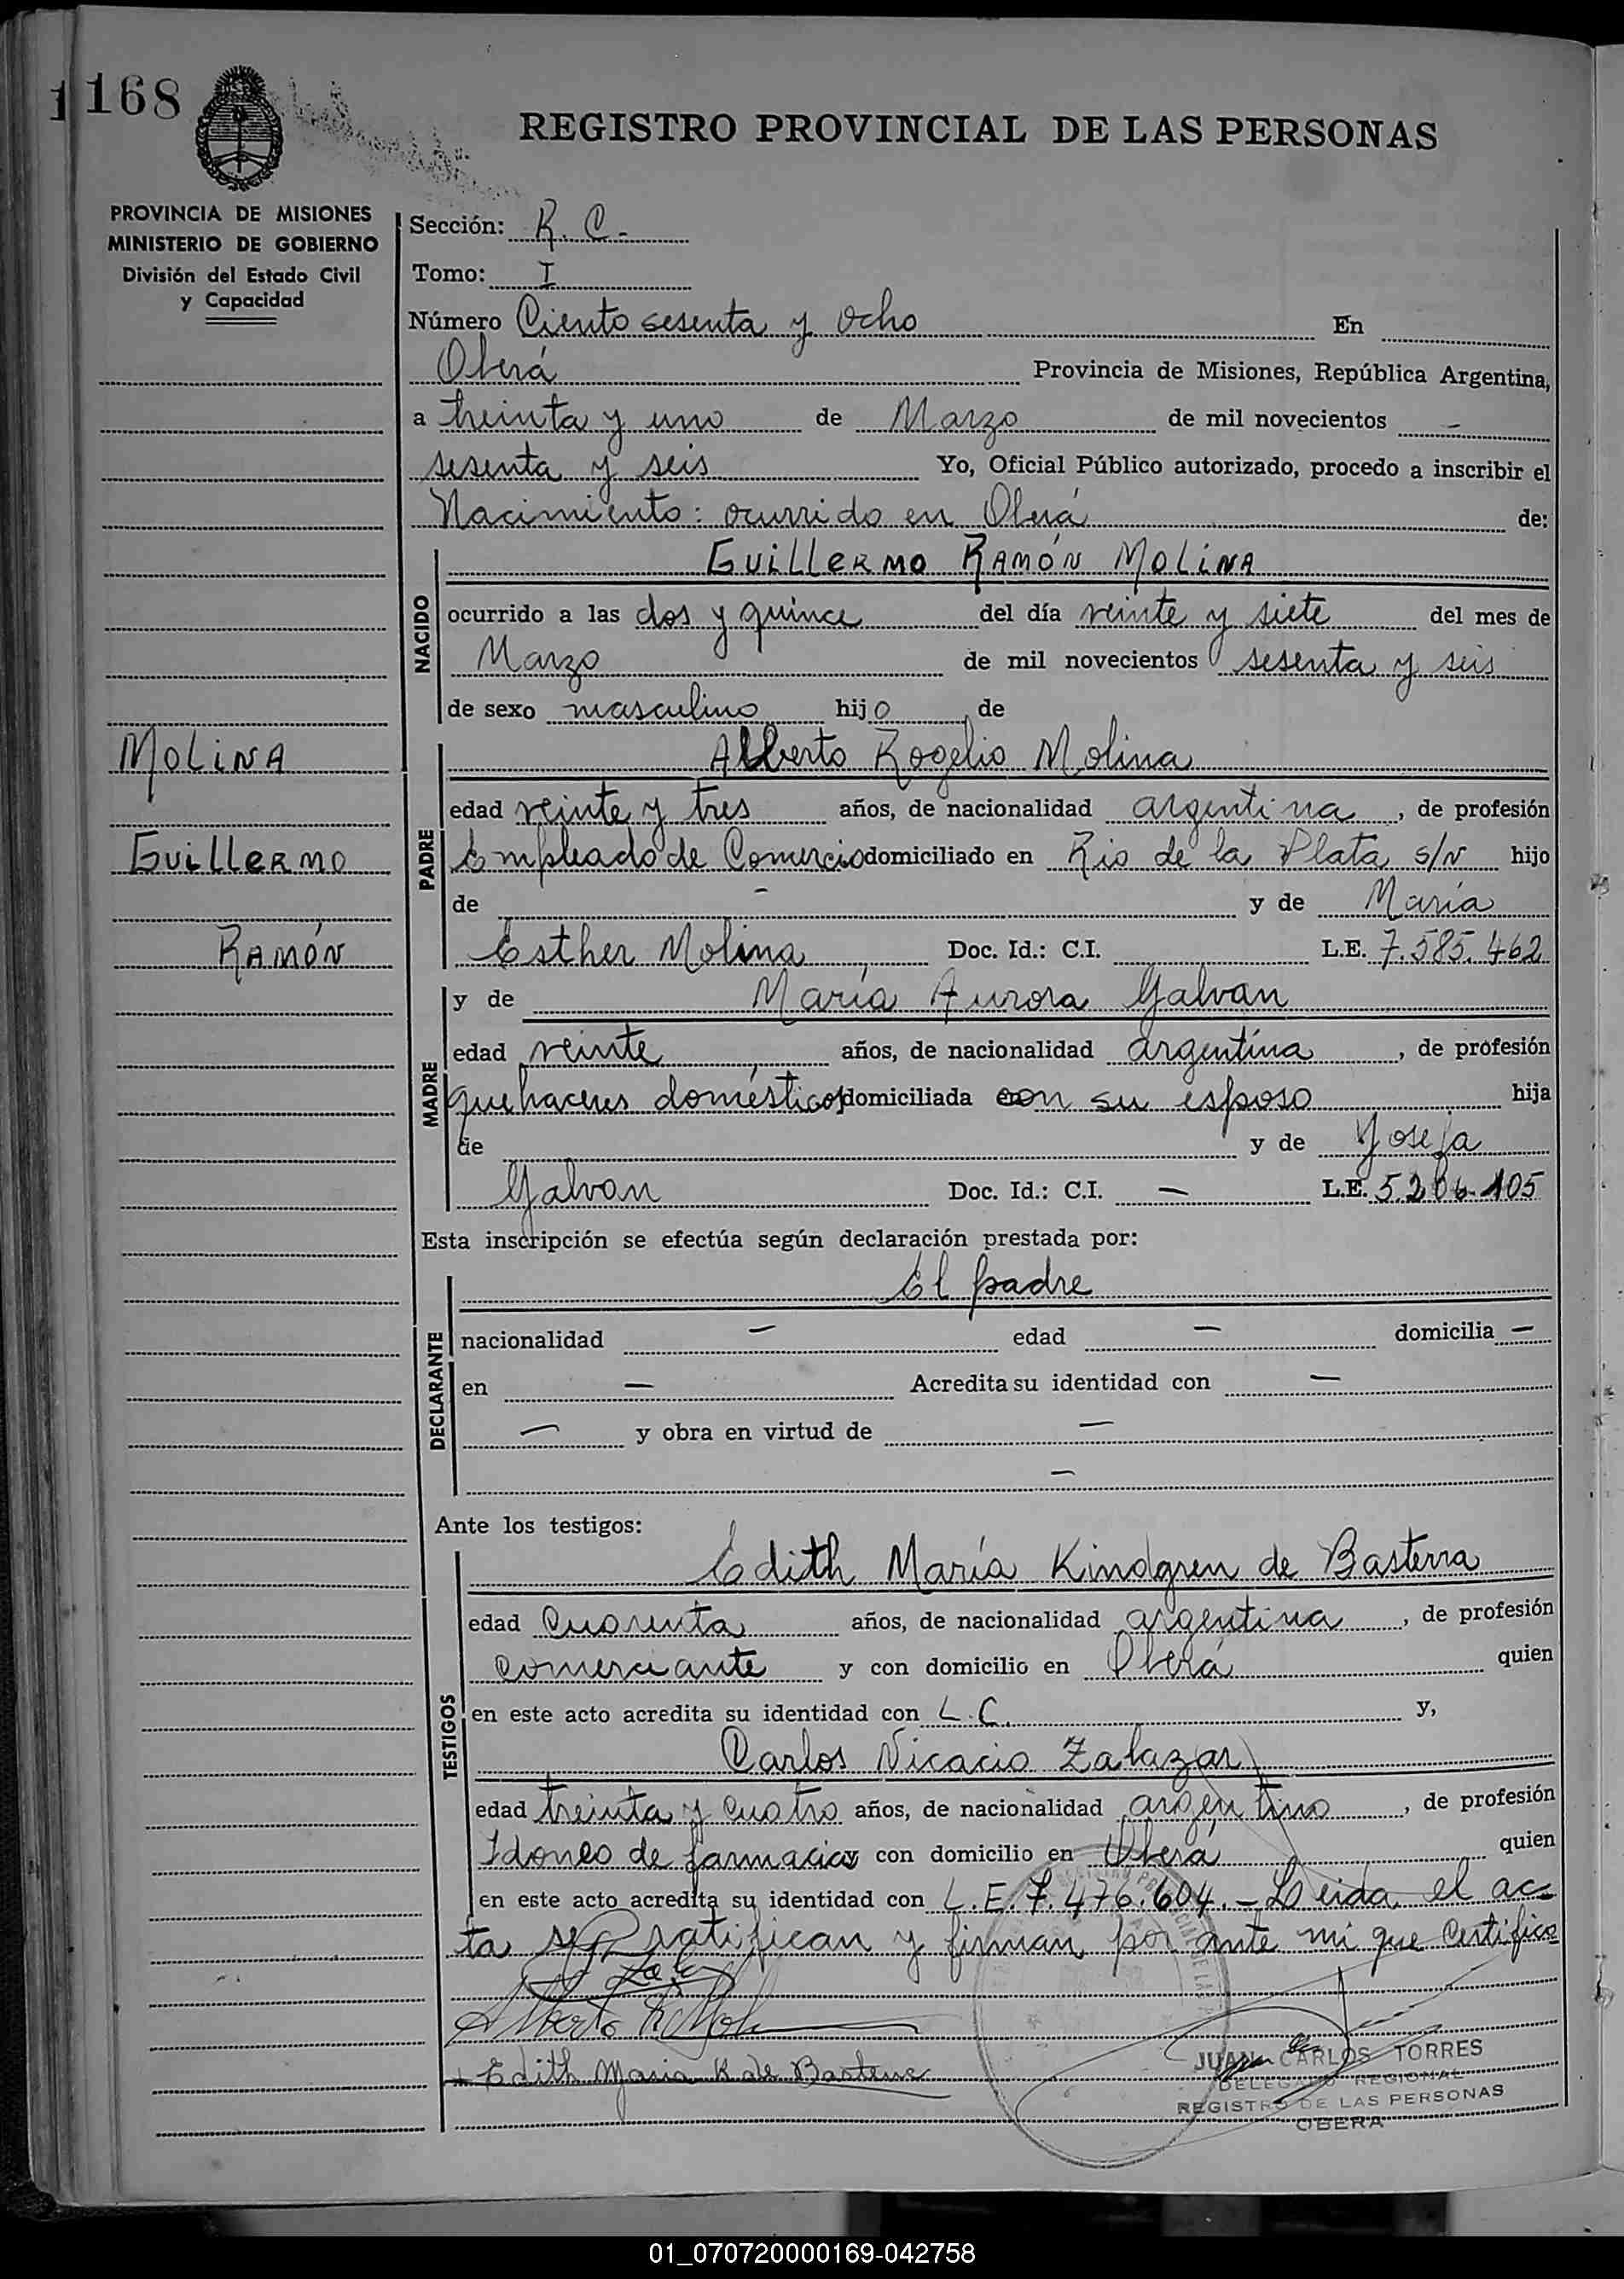 168
REGISTRO PROVINCIAL DE LAS PERSONAS
PROVINCIA DE MISIONES
MINISTERIO DE GOBIERNO
División del Estado Civil
y Capacidad
Sección: R. C.-
Tomo: I
Número Ciento sesenta y ocho En
Oberá Provincia de Misiones, República Argentina,
a treinta y uno de Marzo de mil novecientos -
sesenta y seis Yo, Oficial Público autorizado, procedo a inscribir el
Nacimiento: ocurrido en Oberá de:
NACIDO
Guillermo Ramón Molina
ocurrido a las dos y quince del día veinte y siete del mes de
Marzo de mil novecientos sesenta y seis
de sexo masculino hijo de
MOLINA
Guillermo
Ramón
PADRE
Alberto Rogelio Molina
edad veinte y tres años, de nacionalidad argentina, de profesión
Empleado de Comercio domiciliado en Rio de la Plata s/N hijo
de - y de María
Esther Molina Doc. Id.: C.I. L.E. 7.585.462
MADRE
y de María Aurora Galvan
edad veinte años, de nacionalidad argentina, de profesión
quehaceres domésticos domiciliada con su esposo hija
de y de Yosefa
Galvan Doc. Id.: C.I. - L.E. 5.206.105
Esta inscripción se efectúa según declaración prestada por:
DECLARANTE
El padre
nacionalidad - edad - domicilia -
en - Acredita su identidad con -
- y obra en virtud de -
-
Ante los testigos:
TESTIGOS
Edith María Kindgren de Basterra
edad Cuarenta años, de nacionalidad argentina, de profesión
Comerciante y con domicilio en Oberá quien
en este acto acredita su identidad con L.C. y,
Carlos Nicacio Zalazar
edad treinta y cuatro años, de nacionalidad argentino, de profesión
Idoneo de farmacia y con domicilio en Oberá quien
en este acto acredita su identidad con L.E. 7.476.604.- Leida el ac-
ta se ratifican y firman por ante mi que Certifico
Alberto R. Mol
Edith Maria K de Basterra
JUAN CARLOS TORRES
DELEGADO REGIONAL
REGISTRO DE LAS PERSONAS
OBERA
01_070720000169-042758